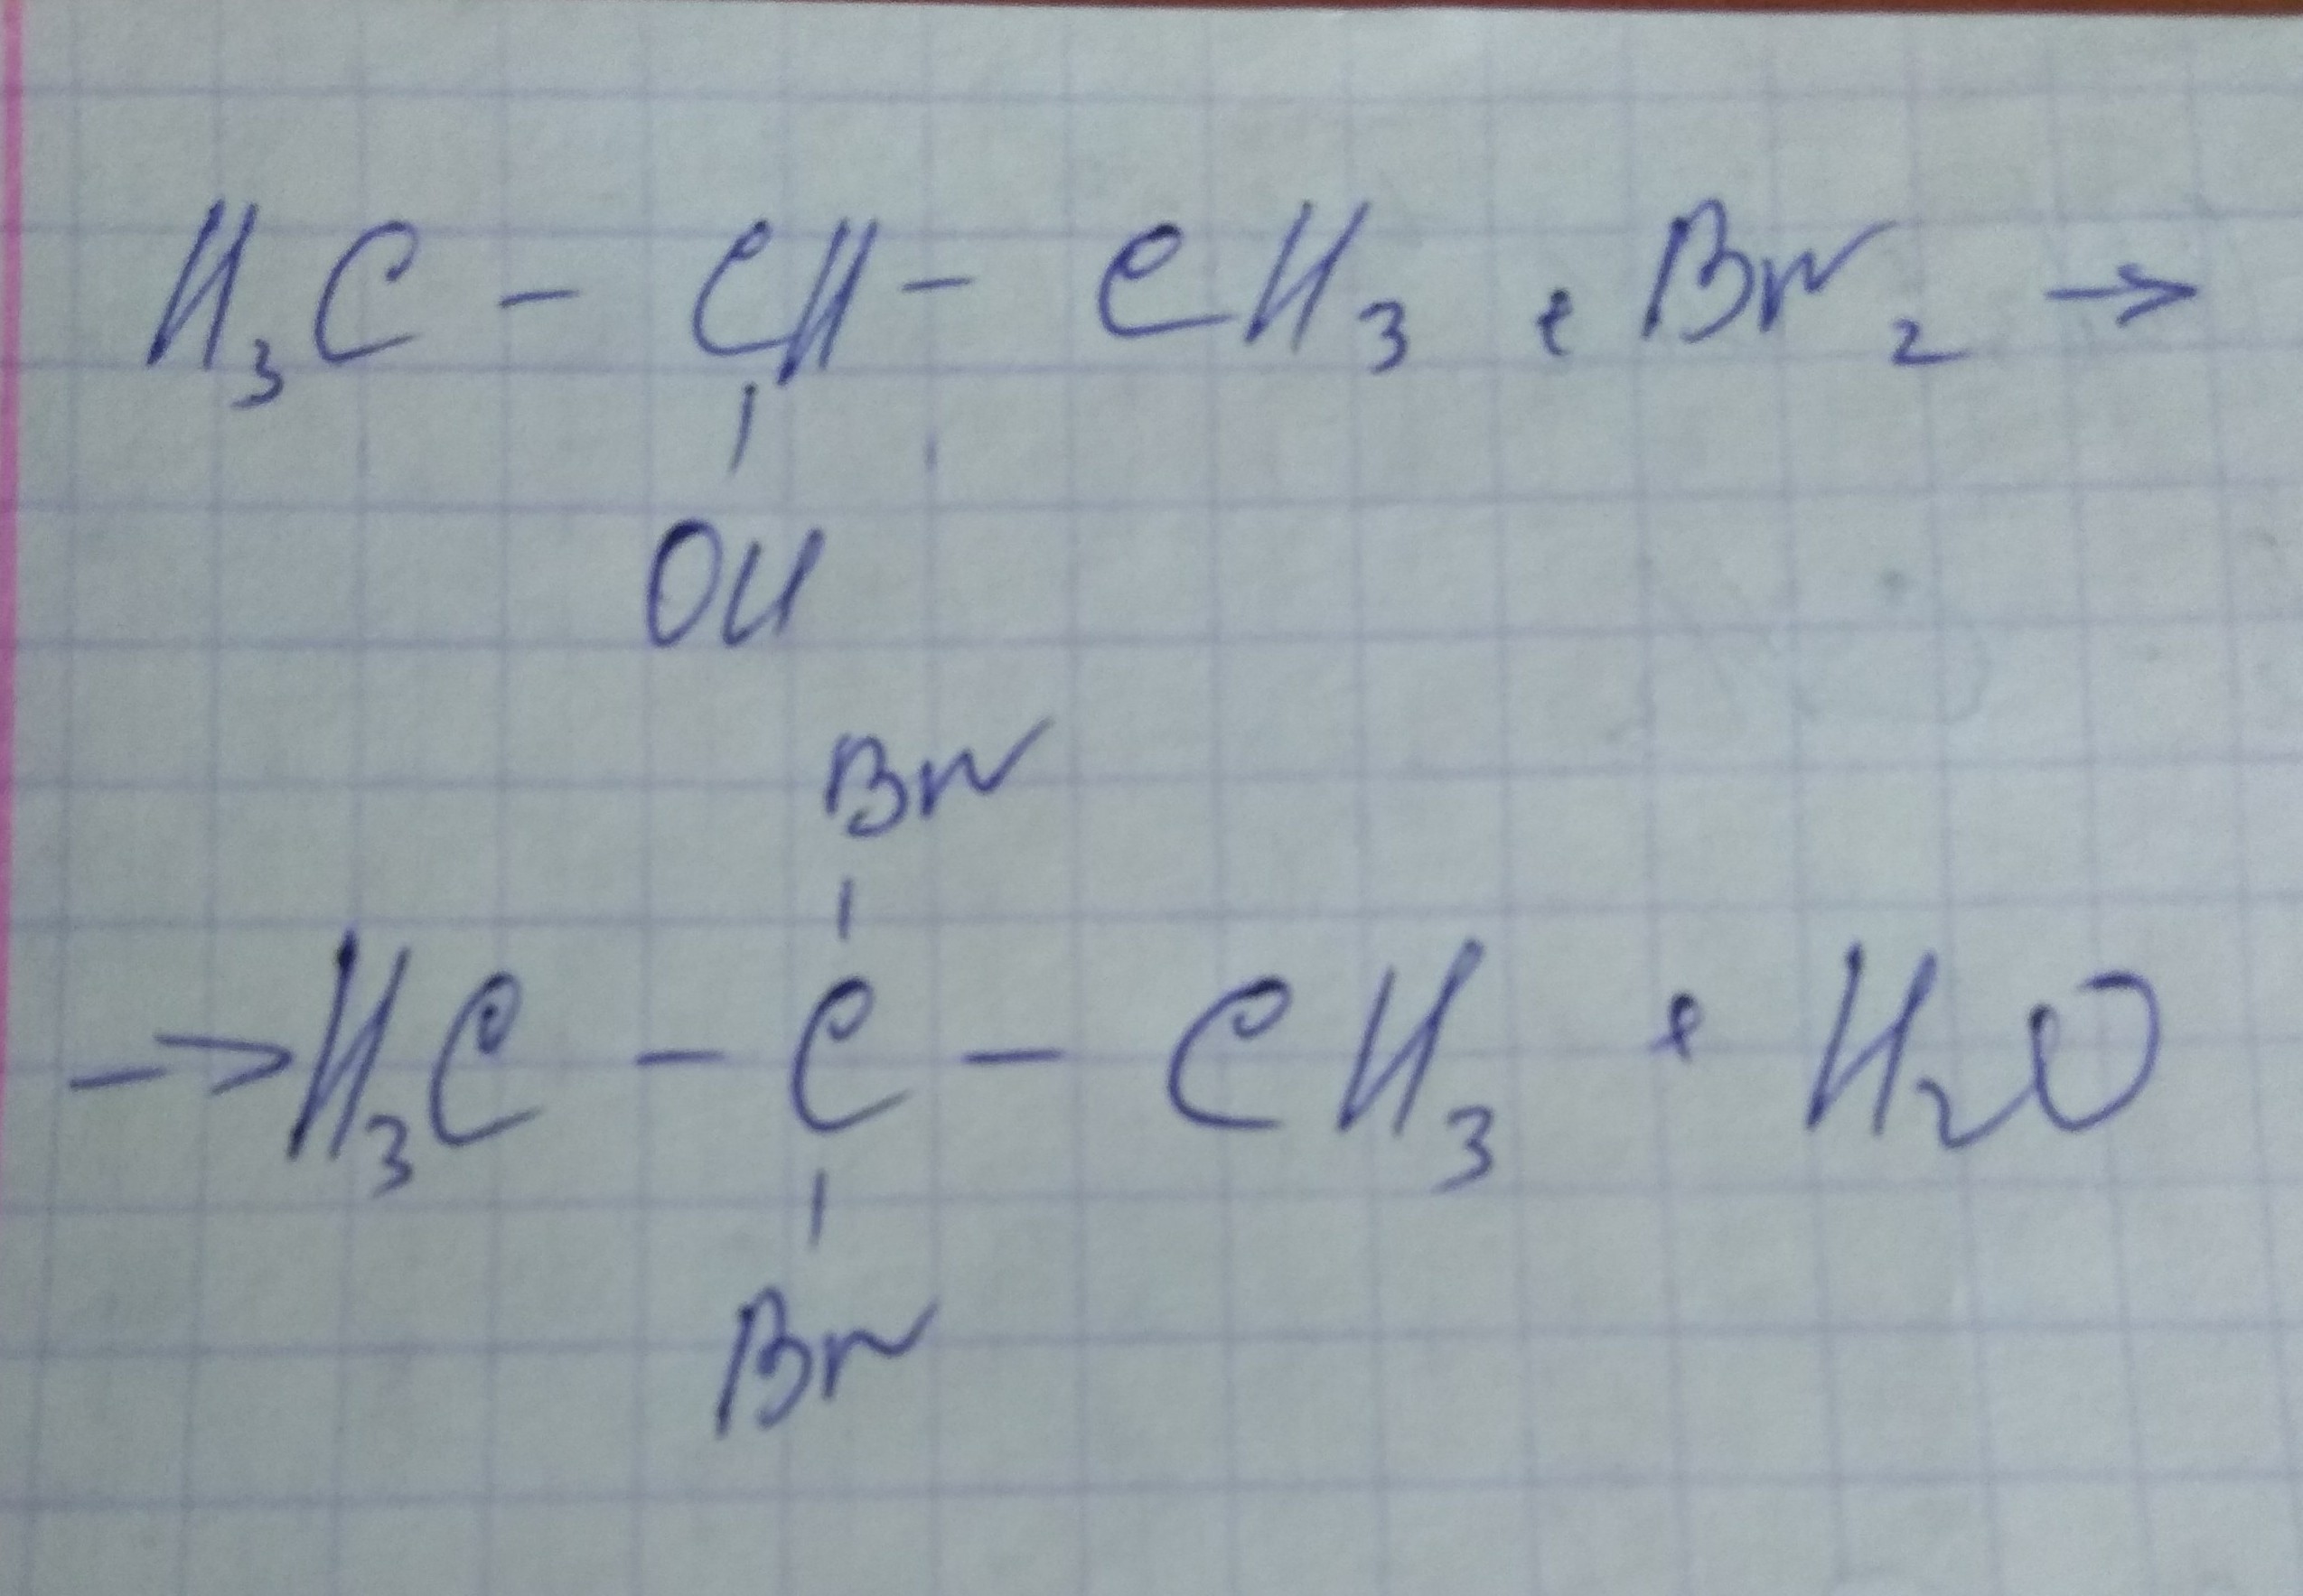 H₃C – CH – CH₃ + Br₂ →
OH
Br
→ H₃C – C – CH₃ + H₂O
Br